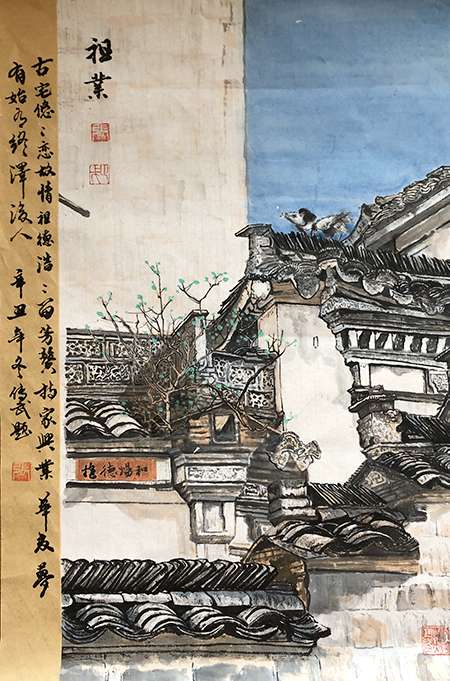 祖業
古宅憶〻戀故情祖德浩〻留芳贊持家興業華友夢
有始有終澤後人 辛丑年冬傳武題
和陽德